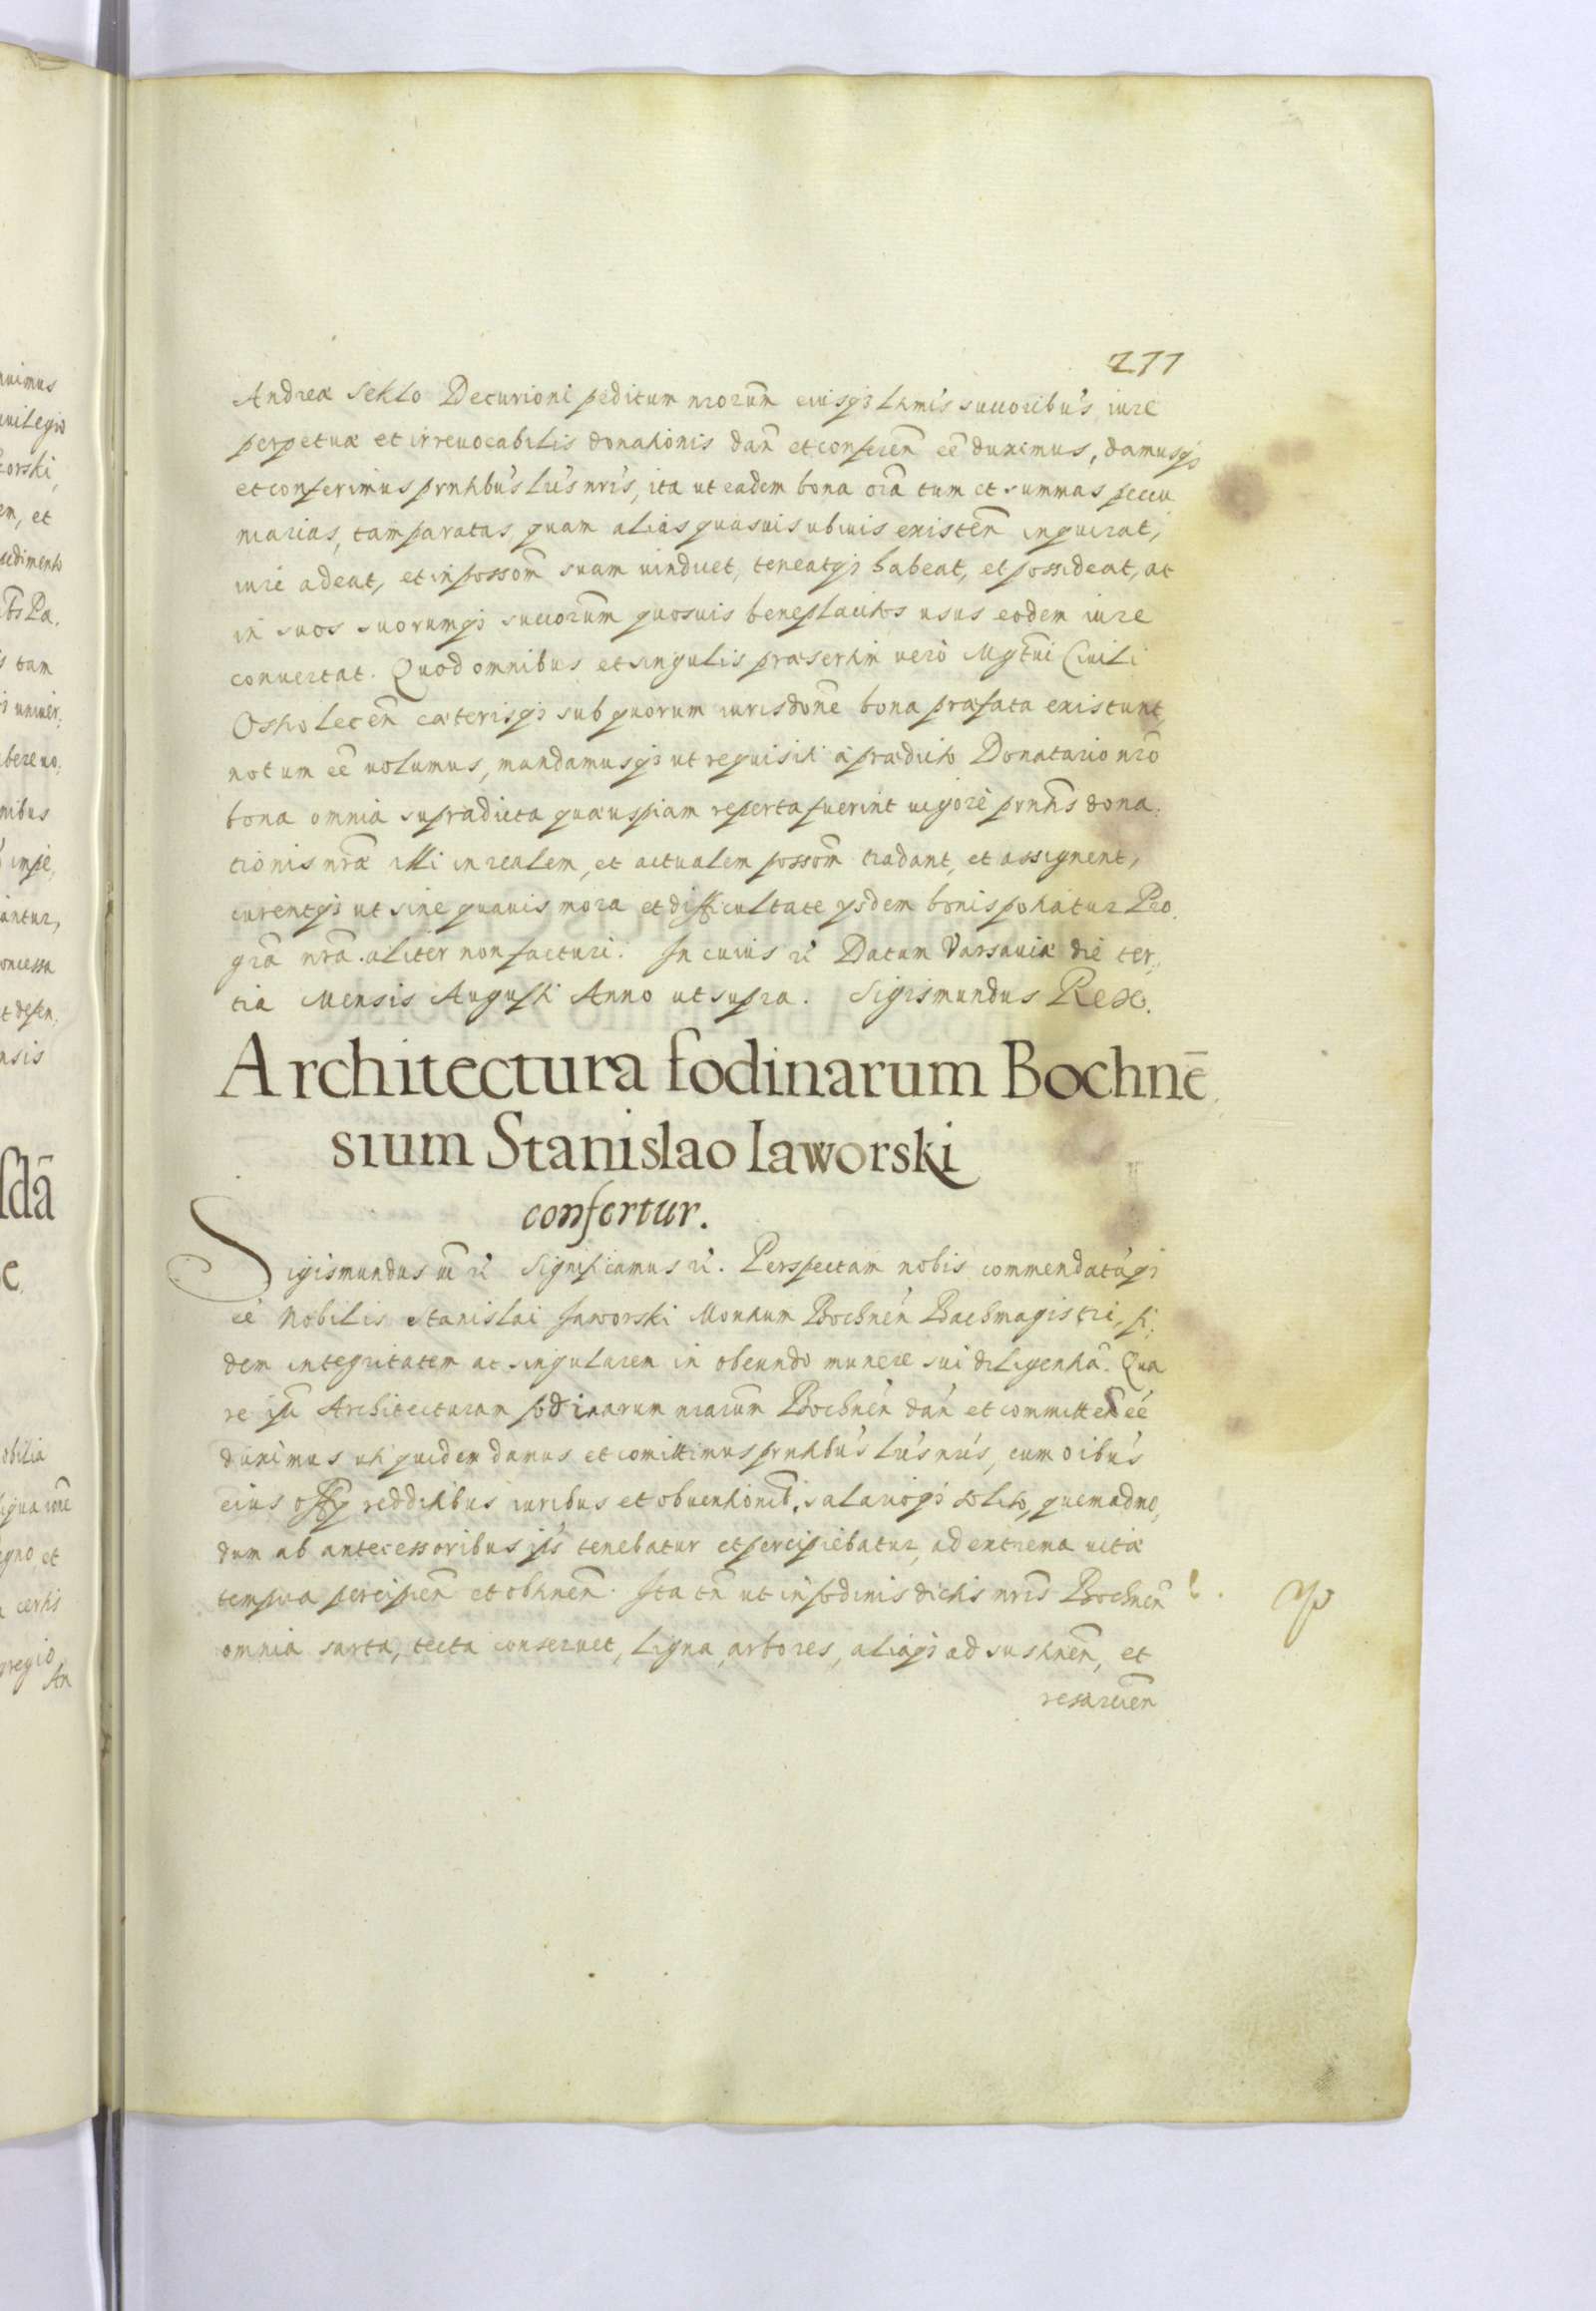 277
Andreæ Seklo Decurioni peditum nrorum̄ eiusq; ltmis succoribus iure
perpetuæ et irreuocabilis donationis dan̄ et conferen̄ eē duximus, damusq;
et conferimus prntibus lris nris, ita ut eadem bona oia tum et summas pecu
niarias, tam paratas, quam alias quasuis ubiuis existen̄ inquirat,
iure adeat, et in possom̄ suam uindicet, teneatq; habeat, et possideat, ac
in suos suorumq; succorum̄ quosuis beneplacitos usus eodem iure
conuertat. Quod omnibus et singulis præsertim uero Mgtui Ciuili
Ostholecen̄ cæterisq; sub quorum iurisdone bona præfata existunt,
notum eē uolumus, mandamusq; ut requisiti a prædicto Donatario nro
bona omnia supradicta quæuspiam reperta fuerint uigore prntis dona.
tionis nræ illi in realem, et actualem possom̄ tradant, et assignent,
curentq; ut sine quauis mora et difficultate ysdem bonis potiatur Pro
gra nra. aliter non facturi. In cuius rei Datum Varsauiæ die ter,
tia Mensis Augusti Anno ut supra. Sigismundus Rex.
Architectura fodinarum Bochnē
sium Stanislao Iaworski
confertur.
Sigismundus III rc Significamus rc. Perspectam nobis commendatāq;
eē Nobilis Stanislai Jaworski Montium Bochnen̄ Bachmagistri, fi,
dem integritatem ac singularem in obeundo munere sui diligentiā. Qua
re ipsi Architecturam fodinarum nrarum̄ Bochnen̄ dan̄ et committen̄ eē
duximus uti quidem damus et comittimus prntibus lris nris, cum oibus
eius offy redditibus iuribus et obuentionib, salarioq; solito, quemadmo,
dum ab antecessoribus ipsis tenebatur et percipiebatur, ad extrema uitæ
tempora percipien̄ et obtinen̄. Ita tn̄ ut in fodinis dictis nris Bochnen̄
omnia sarta, tecta conseruet, ligna, arbores, aliaq; ad sustinen̄, et
resarcien